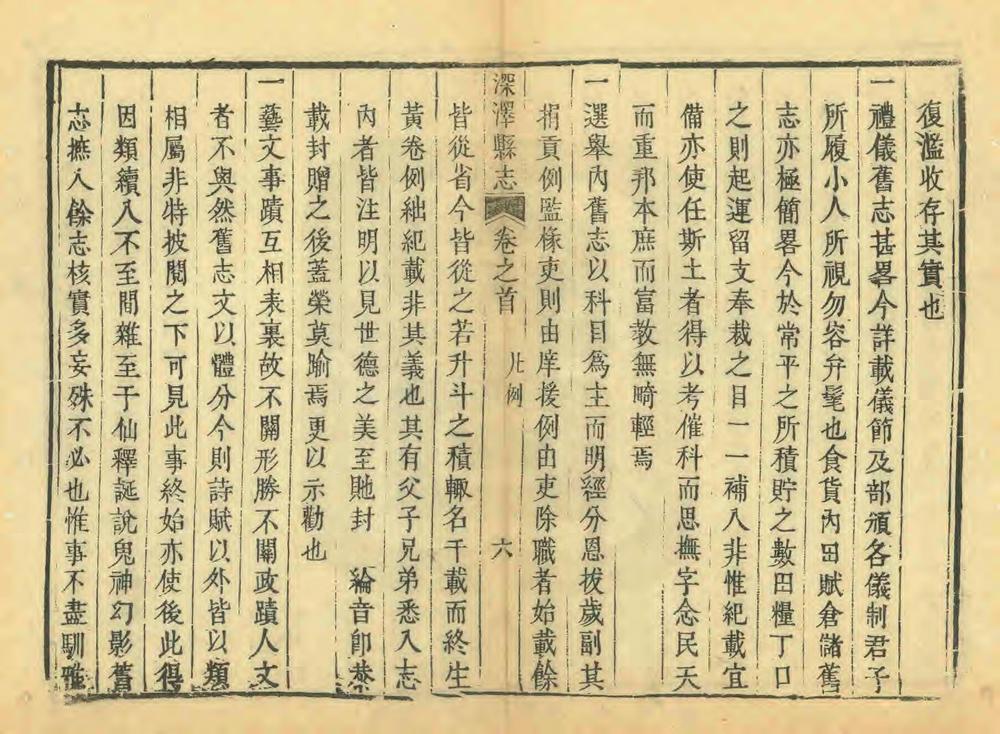 復濫收存其實也
一禮儀舊志甚畧今詳載儀節及部頒各儀制君子
所履小人所視勿容弁髦也食貨內田賦倉儲舊
志亦極簡畧今於常平之所積貯之數田糧丁口
之則起運留支奉裁之目一一補入非惟紀載宜
備亦使任斯土者得以考催科而思撫字念民天
而重邦本庶而富敎無畸輕焉
一選舉內舊志以科目爲主而明經分恩拔歲副其
捐貢例監椽吏則由庠援例由吏除職者始載餘
深澤縣志 卷之首 凡例 六
皆從省今皆從之若升斗之積輙名千載而終生
黃卷例絀紀載非其義也其有父子兄弟悉入志
內者皆注明以見世德之美至貤封 綸音卽恭
載封贈之後蓋榮莫踰焉更以示勸也
一藝文事蹟互相表裏故不關形勝不關政蹟人文
者不與然舊志文以體分今則詩賦以外皆以類
相屬非特披閱之下可見此事終始亦使後此得
因類續入不至間雜至于仙釋誕說鬼神幻影舊
志摭入餘志核實多妄殊不必也惟事不盡馴雅